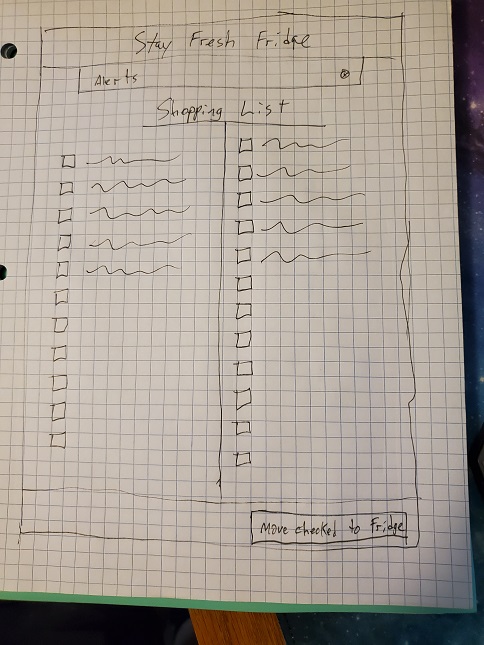 Stay Fresh Fridge
Alerts
Shopping List
Move checked to Fridge